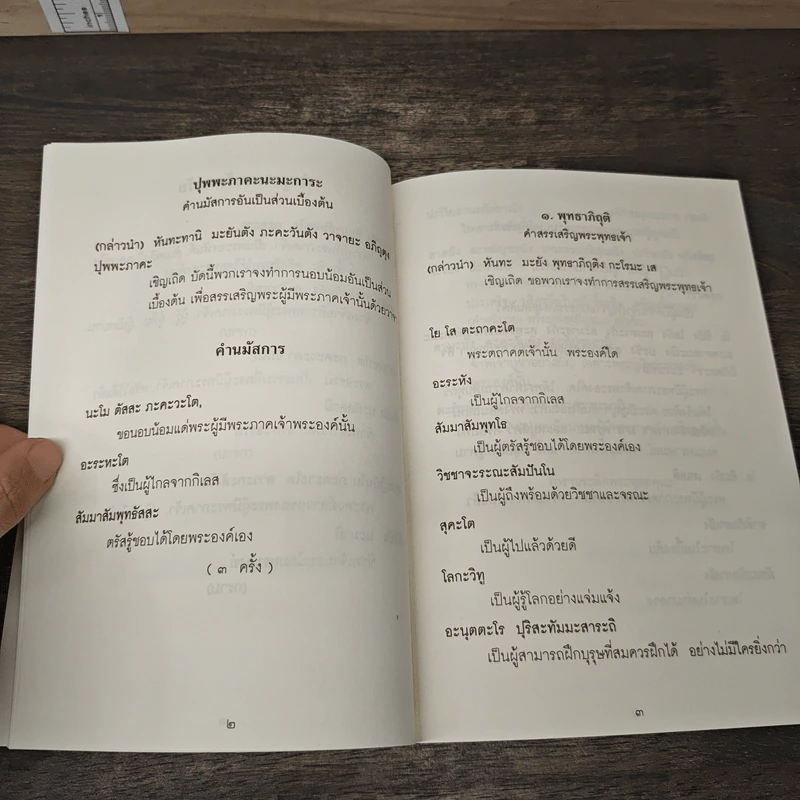 ปุพพะภาคะนะมะการะ
คำนมัสการอันเป็นส่วนเบื้องต้น
(กล่าวนำ) หันทะทานิ มะยันตัง ภะคะวันตัง วาจายะ อภิถุตุง
ปุพพะภาคะ
เชิญเถิด บัดนี้พวกเราจงทำการนอบน้อมอันเป็นส่วน
เบื้องต้น เพื่อสรรเสริญพระผู้มีพระภาคเจ้านั้นด้วยวาจา
คำนมัสการ
นะโม ตัสสะ ภะคะวะโต,
ขอนอบน้อมแด่พระผู้มีพระภาคเจ้าพระองค์นั้น
อะระหะโต
ซึ่งเป็นผู้ไกลจากกิเลส
สัมมาสัมพุทธัสสะ
ตรัสรู้ชอบได้โดยพระองค์เอง
( ๓ ครั้ง )
๒
๑. พุทธาภิถุติ
คำสรรเสริญพระพุทธเจ้า
(กล่าวนำ) หันทะ มะยัง พุทธาภิถุติง กะโรมะ เส
เชิญเถิด ขอพวกเราจงทำการสรรเสริญพระพุทธเจ้า
โย โส ตะถาคะโต
พระตถาคตเจ้านั้น พระองค์ใด
อะระหัง
เป็นผู้ไกลจากกิเลส
สัมมาสัมพุทโธ
เป็นผู้ตรัสรู้ชอบได้โดยพระองค์เอง
วิชชาจะระณะสัมปันโน
เป็นผู้ถึงพร้อมด้วยวิชชาและจรณะ
สุคะโต
เป็นผู้ไปแล้วด้วยดี
โลกะวิทู
เป็นผู้รู้โลกอย่างแจ่มแจ้ง
อะนุตตะโร ปุริสะทัมมะสาระถิ
เป็นผู้สามารถฝึกบุรุษที่สมควรฝึกได้ อย่างไม่มีใครยิ่งกว่า
๓